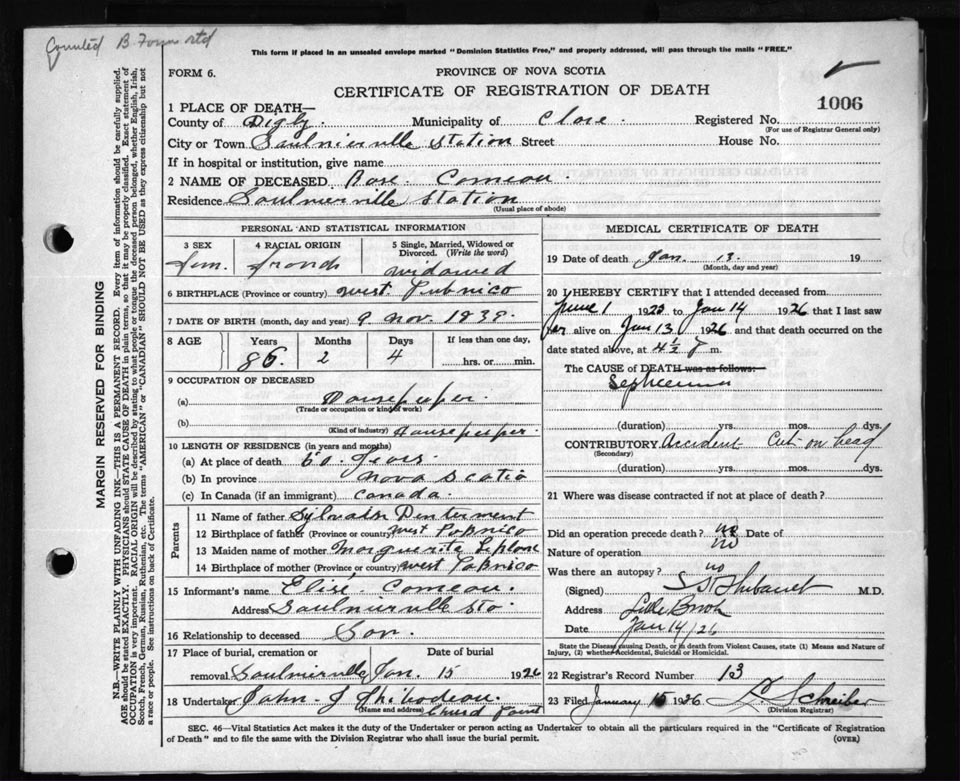 Counted B. Form
This form if placed in an unsealed envelope marked "Dominion Statistics Free," and properly addressed, will pass through the mails "FREE."
FORM 6. PROVINCE OF NOVA SCOTIA
CERTIFICATE OF REGISTRATION OF DEATH
1006
1 PLACE OF DEATH—
County of Digby. Municipality of Clare. Registered No.
(For use of Registrar General only)
City or Town Saulnierville Station Street House No.
If in hospital or institution, give name
2 NAME OF DECEASED Rose Comeau
Residence Saulnierville Station
(Usual place of abode)
PERSONAL AND STATISTICAL INFORMATION
3 SEX 4 RACIAL ORIGIN 5 Single, Married, Widowed or Divorced. (Write the word)
Fem. French widowed
6 BIRTHPLACE (Province or country) West Pubnico
7 DATE OF BIRTH (month, day and year) 9 Nov. 1839.
8 AGE Years Months Days If less than one day,
86 2 4 hrs. or min.
9 OCCUPATION OF DECEASED
(a) Housekeeper.
(Trade or occupation or kind of work)
(b) Housekeeper.
(Kind of industry)
10 LENGTH OF RESIDENCE (in years and months)
(a) At place of death 60. Years
(b) In province Nova Scotia
(c) In Canada (if an immigrant) Canada.
Parents
11 Name of father
12 Birthplace of father (Province or country) West Pobnico
13 Maiden name of mother Marguerite
14 Birthplace of mother (Province or country) West Pobnico
15 Informant's name Elisé Comeau
Address Saulnierville Sta.
16 Relationship to deceased Son.
17 Place of burial, cremation or Date of burial
removal Saulnierville Jan. 15 1926
18 Undertaker John J Thibodeau.
(Name and address) Church Point
MEDICAL CERTIFICATE OF DEATH
19 Date of death Jan. 13. 19
(Month, day and year)
20 I HEREBY CERTIFY that I attended deceased from
June 1 1925 to Jan 14 1926 that I last saw
her alive on Jan 13 1926 and that death occurred on
date stated above, at 4½ P m.
The CAUSE of DEATH was as follows:
Septicemia
(duration) yrs. mos. dys.
CONTRIBUTORY Accident Cut on head
(Secondary)
(duration) yrs. mos. dys.
21 Where was disease contracted if not at place of death?
Did an operation precede death? no Date of
Nature of operation no
Was there an autopsy? no
(Signed) Thibault M.D.
Address Little Brook
Date Jan 14/26
State the Disease causing Death, or in death from Violent Causes, state (1) Means and Nature of
Injury, (2) whether Accidental, Suicidal or Homicidal.
22 Registrar's Record Number 13
23 Filed January 15 1926 L. Schreiber
(Division Registrar)
SEC. 46—Vital Statistics Act makes it the duty of the Undertaker or person acting as Undertaker to obtain all the particulars required in the "Certificate of Registration
of Death" and to file the same with the Division Registrar who shall issue the burial permit. (OVER)
MARGIN RESERVED FOR BINDING
N.B.—WRITE PLAINLY WITH UNFADING INK—THIS IS A PERMANENT RECORD. Every item of information should be carefully supplied.
AGE should be stated EXACTLY. PHYSICIANS should STATE CAUSE OF DEATH in plain terms, so that it may be properly classified. Exact statement of
OCCUPATION is very important. RACIAL ORIGIN will be described by stating to what people or tongue the deceased person belonged, whether English, Irish,
Scotch, French, German, Russian, Ruthenian, etc. The terms "AMERICAN" or "CANADIAN" SHOULD NOT BE USED as they express citizenship but not
a race or people. See instructions on back of Certificate.